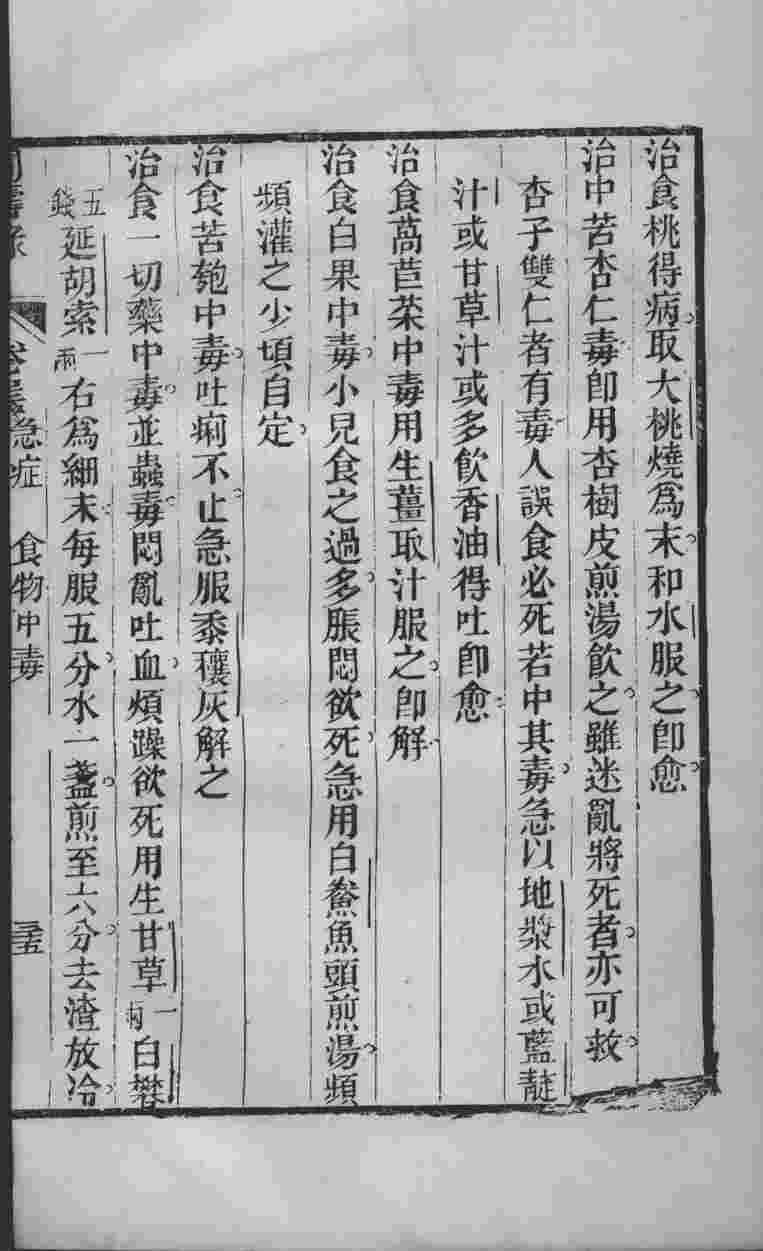 治食桃得病取大桃燒爲末和水服之卽愈
治中苦杏仁毒卽用杏樹皮煎湯飮之雖迷亂將死者亦可救
杏子雙仁者有毒人誤食必死若中其毒急以地漿水或藍靛
汁或甘草汁或多飮香油得吐卽愈
治食萵苣菜中毒用生薑取汁服之卽解
治食白果中毒小兒食之過多脹悶欲死急用白鯗魚頭煎湯頻
頻灌之少頃自定
治食苦匏中毒吐痢不止急服黍穰灰解之
治食一切藥中毒並蟲毒悶亂吐血煩躁欲死用生甘草一兩白礬
五錢延胡索一兩右爲細末每服五分水一盞煎至六分去渣放冷
急症　食物中毒　三五